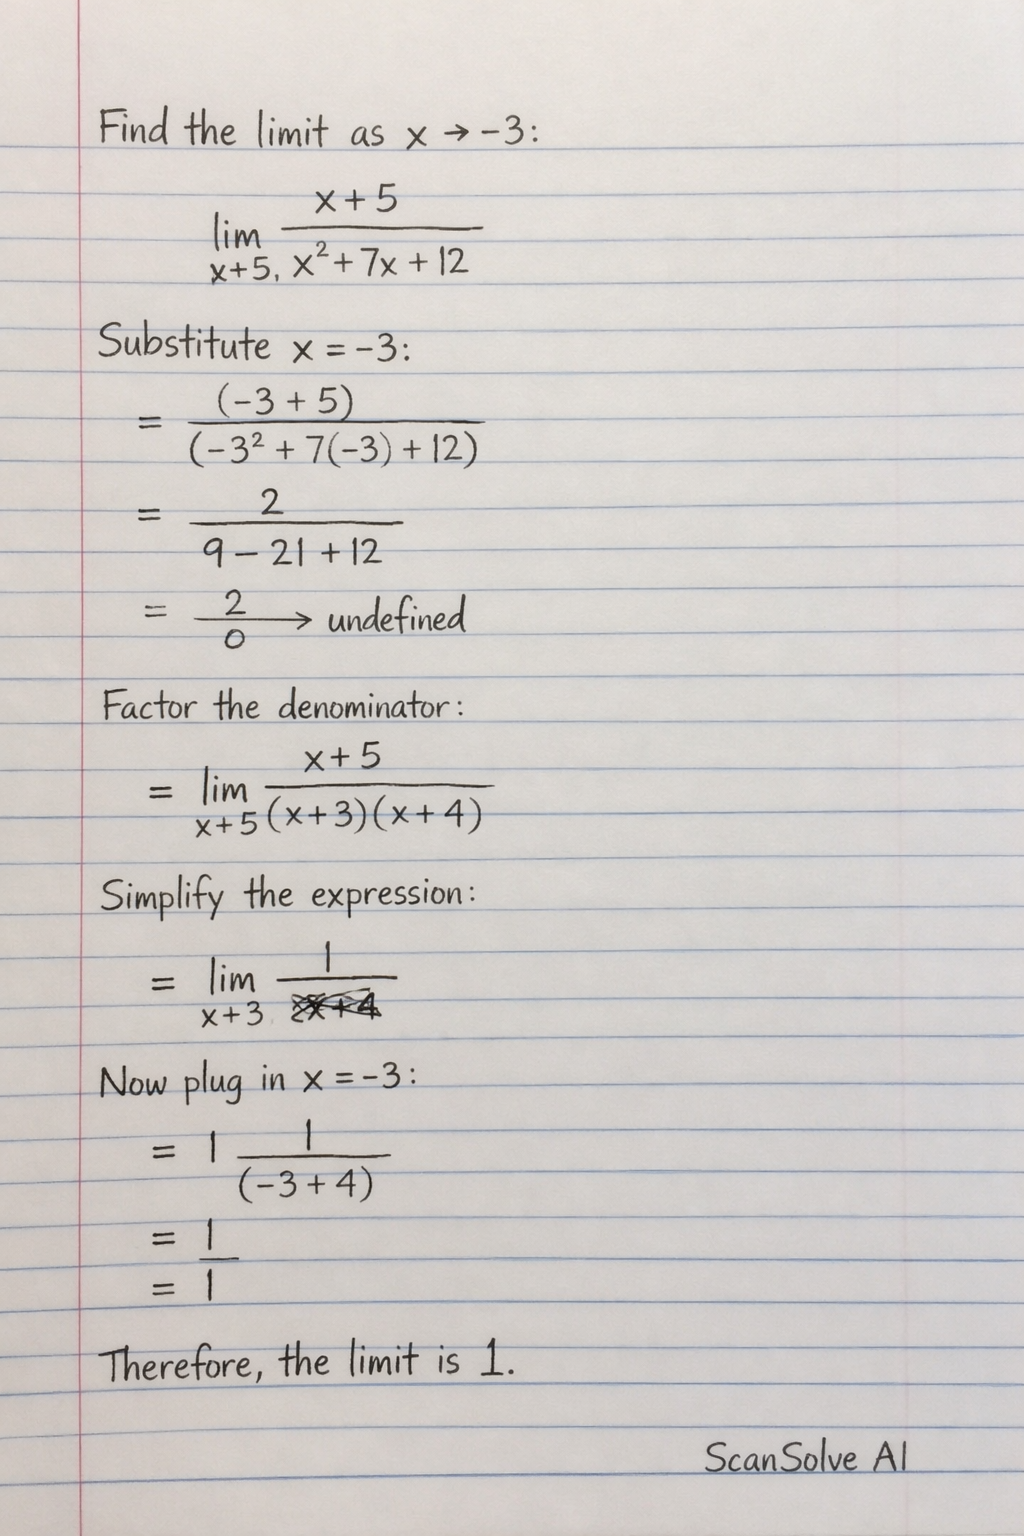 Find the limit as x → -3:
x + 5
lim
x+5, x² + 7x + 12
Substitute x = -3:
(-3 + 5)
=
(-3² + 7(-3) + 12)
2
=
9 - 21 + 12
= 2
→ undefined
0
Factor the denominator:
x + 5
= lim
x+5 (x+3)(x+4)
Simplify the expression:
1
= lim
x+3
Now plug in x = -3:
= 1 1
(-3 + 4)
= 1
= 1
Therefore, the limit is 1.
ScanSolve AI